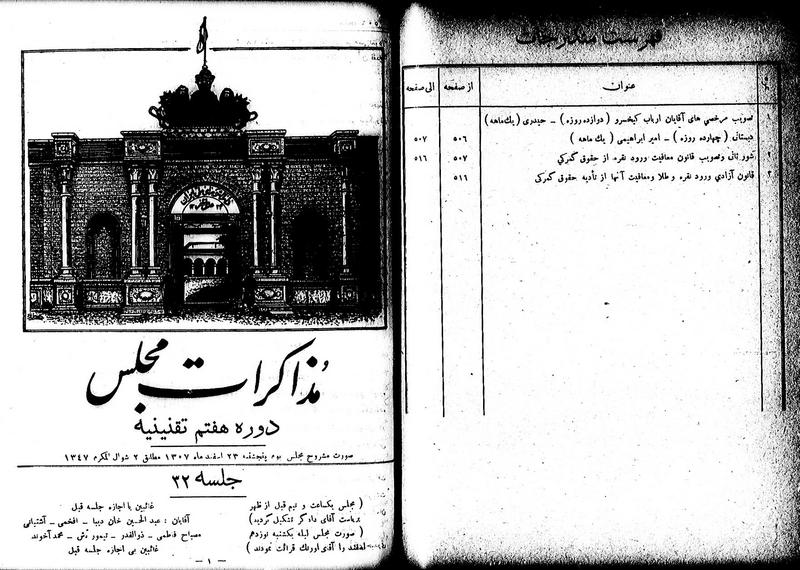 فهرست مندرجات
عنوان
از صفحه
الی صفحه
تصویب مرخصی های آقایان ارباب کیخسرو ( دوازده روزه ) – حیدری ( یك ماهه )
دبستانی ( چهارده روزه ) – امیر ابراهیمی ( یك ماهه )
۵۰۶
۵۰۷
شور ثانی و تصویب قانون معافیت ورود نقره از حقوق گمرکی
۵۰۷
۵۱۶
قانون آزادی ورود نقره و طلا و معافیت آنها از تأدیه حقوق گمرکی
۵۱۶
مذاکرات مجلس
دوره هفتم تقنینیه
صورت مشروح مجلس یوم پنجشنبه ۲۳ اسفند ماه ۱۳۰۷ مطابق ۲ شوال المکرم ۱۳۴۷
جلسه ۳۲
( مجلس یکساعت و نیم قبل از ظهر
بریاست آقای دادگر تشکیل گردید )
( صورت مجلس لیله یکشنبه نوزدهم
اسفند را آقای اورنك قرائت نمودند )
غائبین با اجازه جلسه قبل
آقایان : عبدالحسین خان دیبا – افخمی – آشتیانی
مصباح فاطمی – ذوالقدر – تیمورتاش – محمد آخوند
غائبین بی اجازه جلسه قبل
– ۱ –